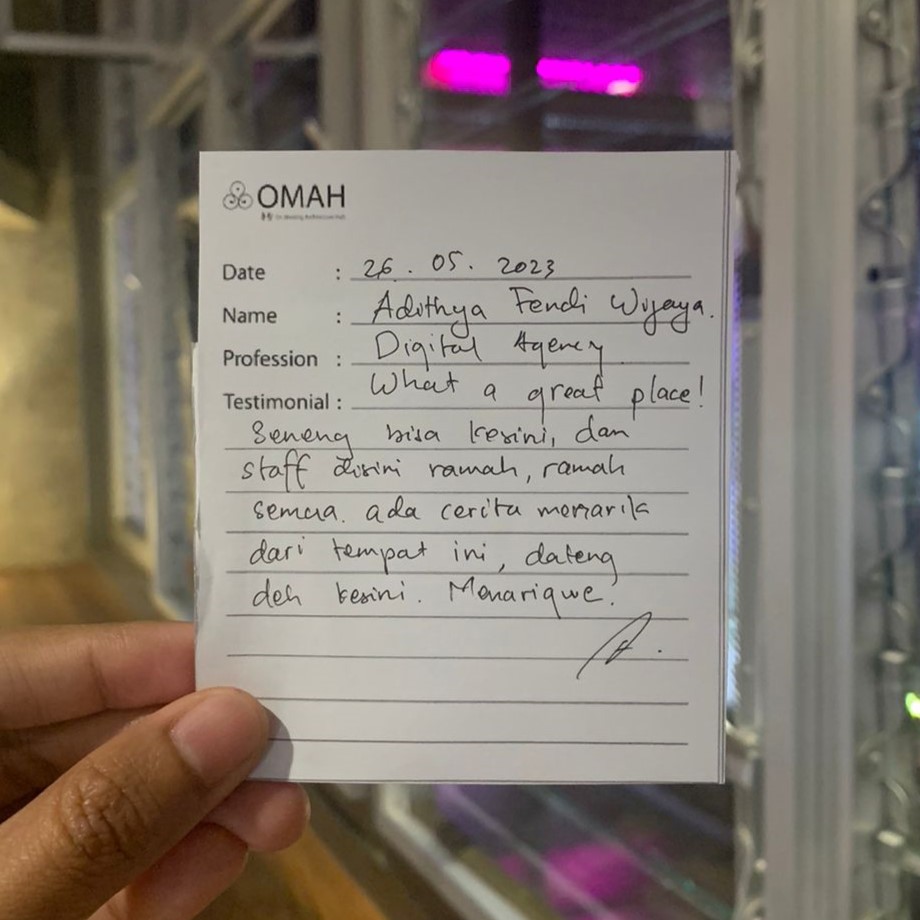 OMAH
Date : 26 . 05 . 2023
Name : Adithya Fendi Wijaya.
Profession : Digital Agency
Testimonial : What a great place!
Seneng bisa kesini, dan
staff disini ramah, ramah
semua. ada cerita menarik
dari tempat ini, dateng
deh kesini. Menariqwe.